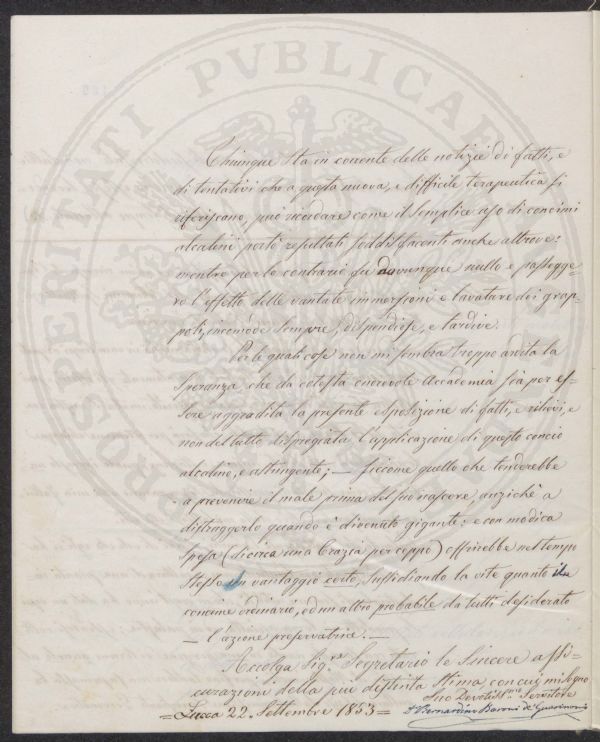 Chiunque sta in corrente delle notizie di fatti, e
di tentativi che a questa nuova, e difficile terapeutica si
riferiscano, può ricordare come il semplice uso di concimi
alcalini portò resultati soddisfacenti anche altrove:
mentre per lo contrario fu dovunque nullo e passegge=
ro l'effetto delle vantate immersioni e lavature dei grap=
poli, incomode sempre, dispendiose, e tardive.
Per le quali cose non mi sembra troppo ardita la
speranza che da cotesta onorevole Accademia sia per es=
sere aggradita la presente esposizione di fatti, e rilievi, e
non del tutto dispregiata l'applicazione di questo concio
alcalino, e astringente; — siccome quello che tenderebbe
a prevenire il male prima del suo nascere, anzichè a
distruggerlo quando è diventato gigante: e con modica
spesa (di circa una Crazia per ceppo) offrirebbe nel tempo
stesso un vantaggio certo, sussidiando la vite quanto un
concime ordinario, ed un altro probabile da tutti desiderato
— l'azione preservatrice. —
Accolga Sig.re Segretario le sincere assi=
curazioni della più distinta stima con cui mi segno
Suo Devotiss.mo Servitore
= Lucca 22 Settembre 1853 =
D. Bernardino Baroni de' Guarinoni
PROSPERITATI PVBLICAE